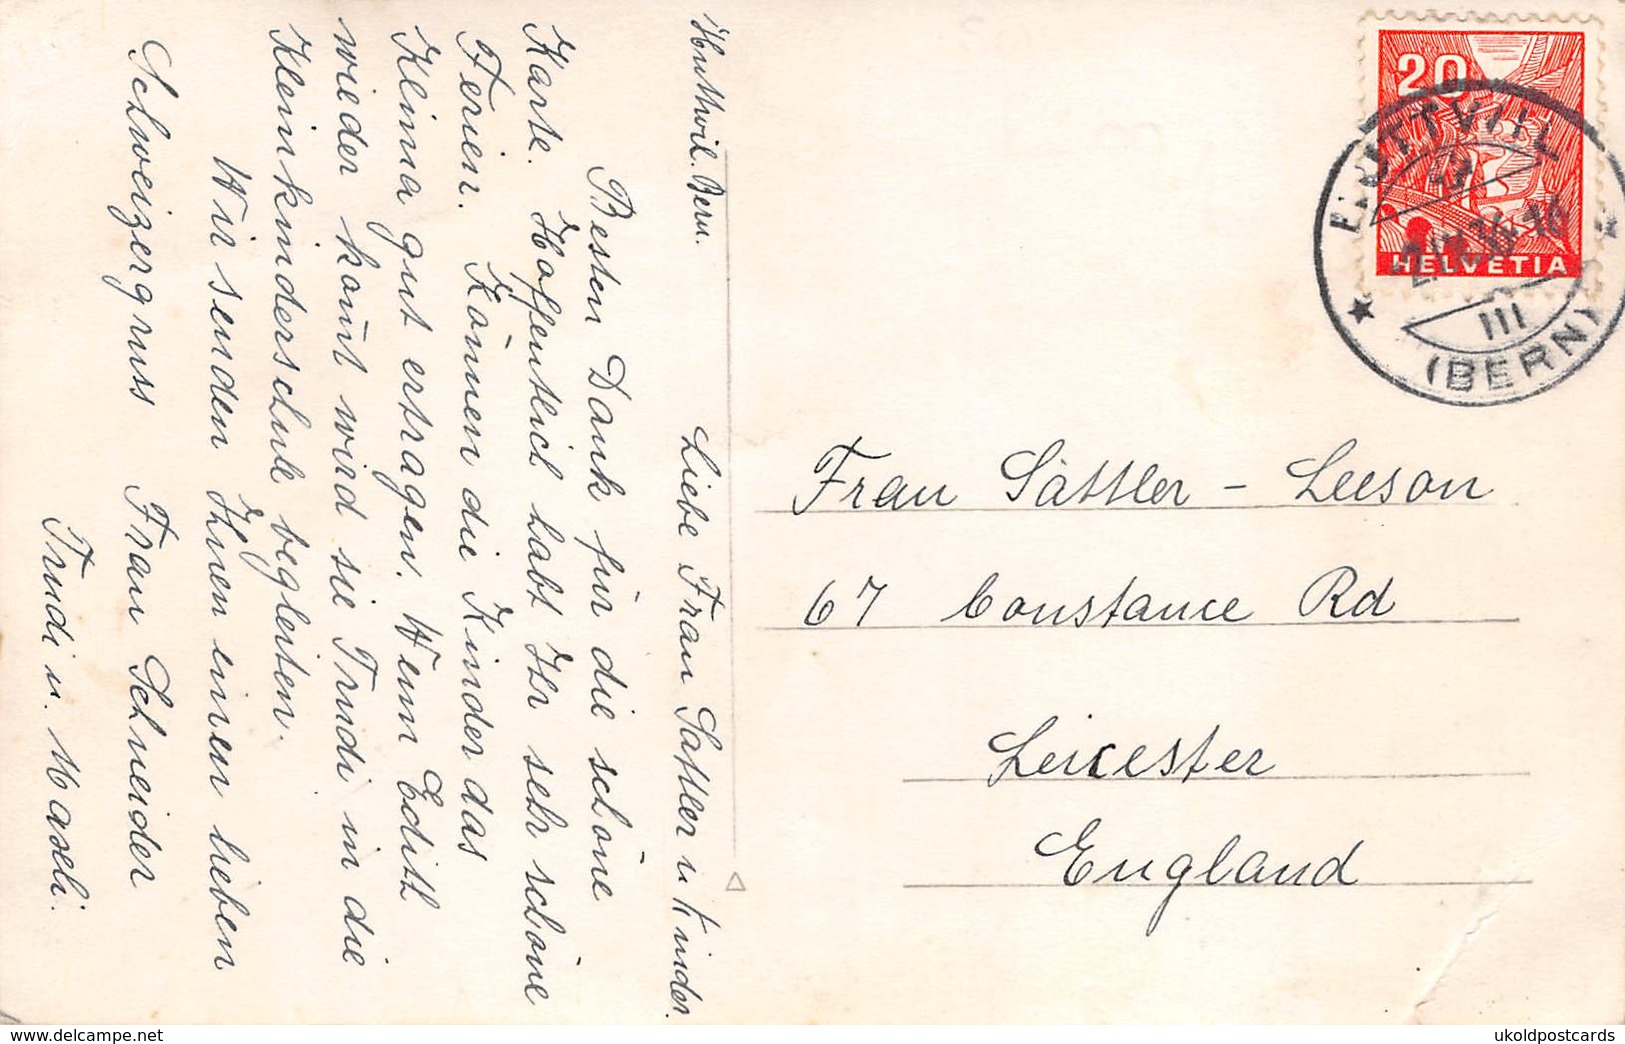 Huttwil. Bern.
Liebe Frau Sattler u. Kinder.
Besten Dank für die schöne
Karte. Hoffentlich habt Ihr sehr schöne
Ferien. Können die Kinder das
Klima gut ertragen. Wenn Edith
wieder kom̄t wird sie Trudi in die
Kleinkinderschule begleiten.
Wir senden Ihnen einen lieben
Schweizergruss Frau Schneider
Trudi u. Maseli.
20
HELVETIA
HUTTWIL
III
(BERN)
Frau Sättler - Leeson
67 Constance Rd
Leicester
England
ukoldpostcards